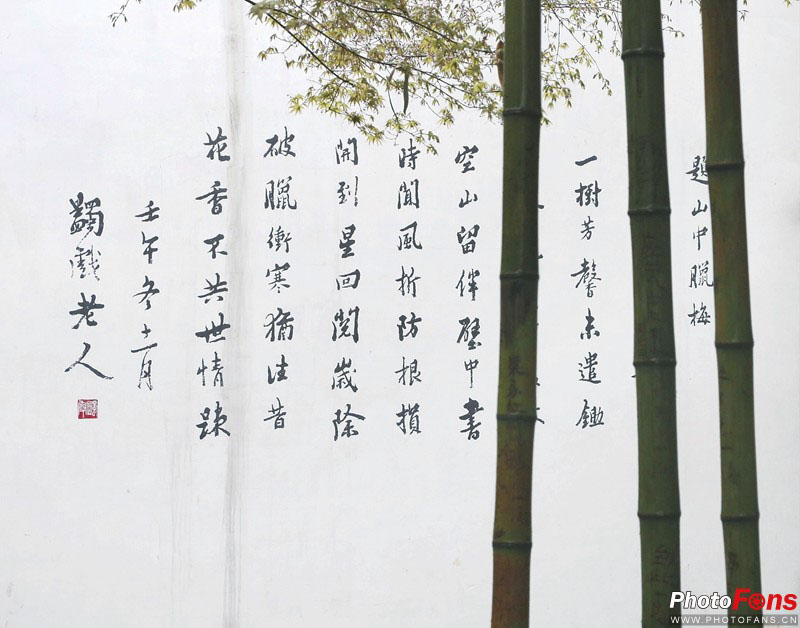 題山中臘梅
一樹芳馨未遣鋤
空山留伴壁中書
時聞風折防根損
開到星回閱歲除
破臘衝寒猶佳昔
花香不共世情疎
壬午冬十一月
蠲戲老人
PhotoFans
WWW.PHOTOFANS.CN